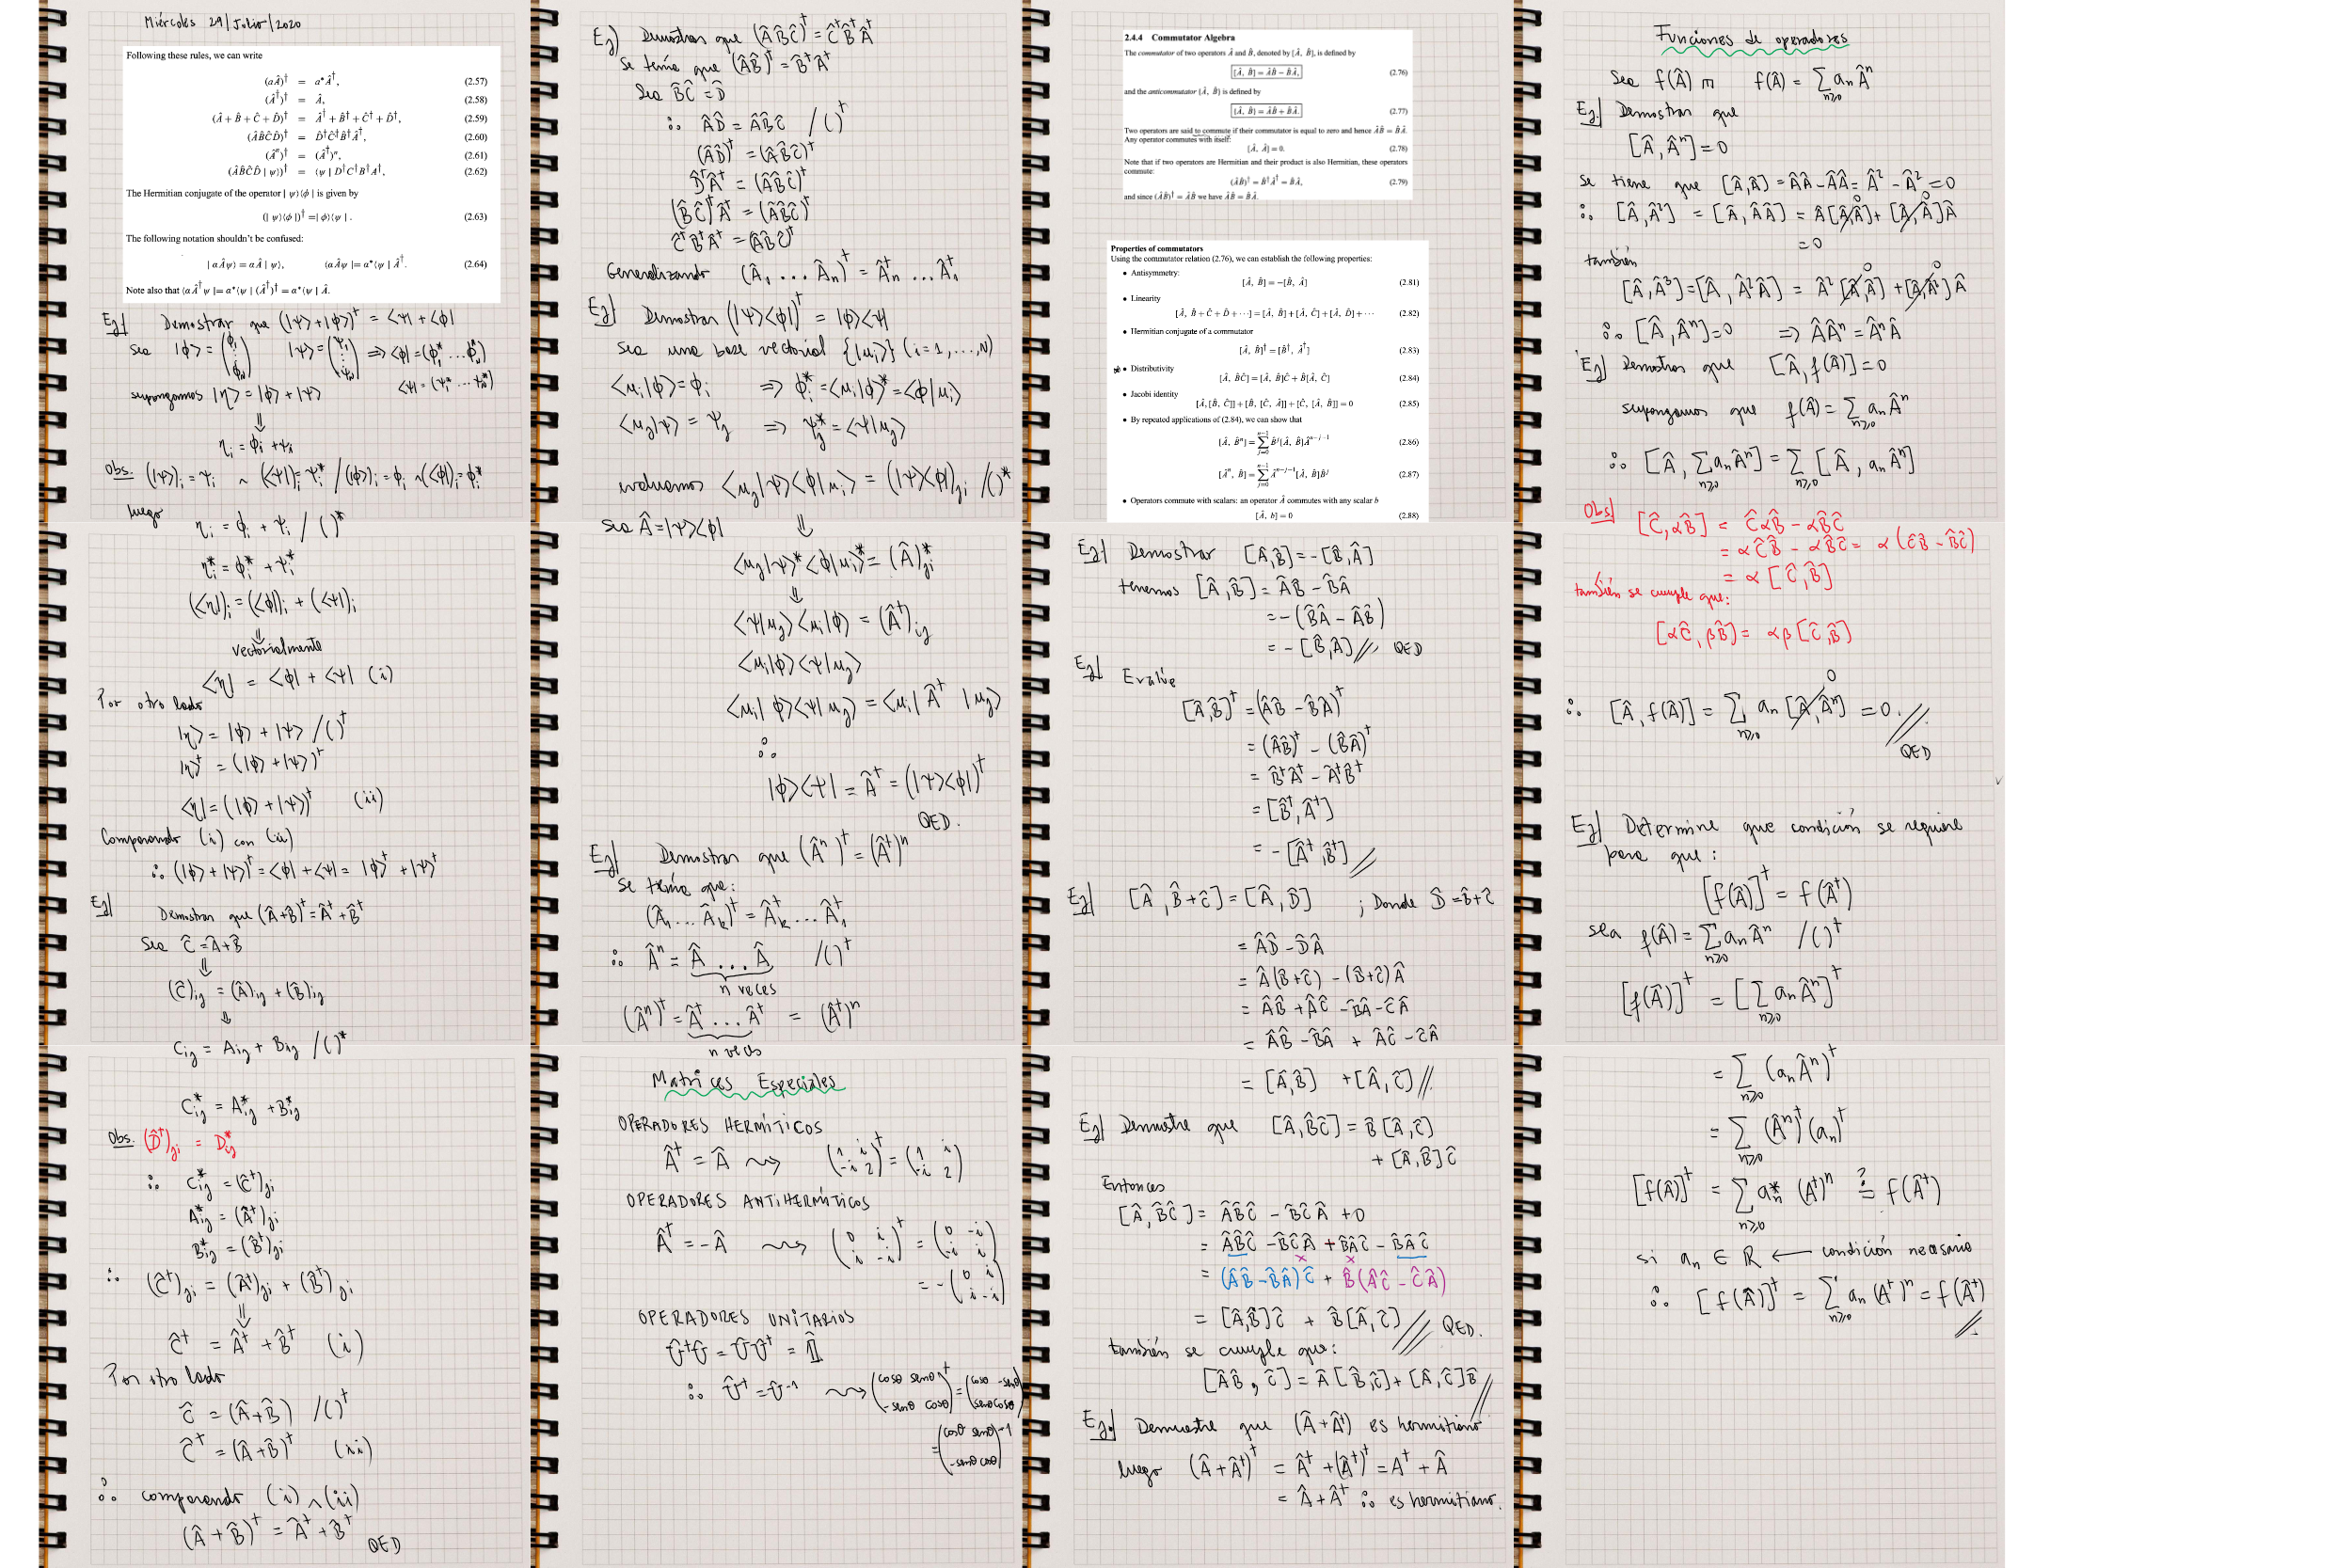 Miércoles 29/Julio/2020
Following these rules, we can write
(aÂ)† = a*Â†, (2.57)
(Â†)† = Â, (2.58)
(Â + B̂ + Ĉ + D̂)† = Â† + B̂† + Ĉ† + D̂†, (2.59)
(ÂB̂ĈD̂)† = D̂†Ĉ†B̂†Â†, (2.60)
(Âⁿ)† = (Â†)ⁿ, (2.61)
(ÂB̂ĈD̂ | ψ⟩)† = ⟨ψ | D†C†B†A†. (2.62)
The Hermitian conjugate of the operator | ψ⟩⟨φ | is given by
(| ψ⟩⟨φ |)† = | φ⟩⟨ψ | . (2.63)
The following notation shouldn't be confused:
| αÂψ⟩ = αÂ | ψ⟩, ⟨αÂψ | = α*⟨ψ | Â†. (2.64)
Note also that ⟨αÂ†ψ | = α*⟨ψ | (Â†)† = α*⟨ψ | Â.
Ej/ Demostrar que (|ψ⟩+|φ⟩)† = ⟨ψ| + ⟨φ|
sea |φ⟩ = (φ₁ ⋮ φN) |ψ⟩ = (ψ₁ ⋮ ψN) ⇒ ⟨φ| = (φ₁* ... φN*)
⟨ψ| = (ψ₁* ... ψN*)
supongamos |η⟩ = |φ⟩ + |ψ⟩
⇓
ηᵢ = φᵢ + ψᵢ
Obs. (|ψ⟩)ᵢ = ψᵢ ∼ (⟨ψ|)ᵢ = ψᵢ* / (|φ⟩)ᵢ = φᵢ ∼ (⟨φ|)ᵢ = φᵢ*
luego
ηᵢ = φᵢ + ψᵢ / ( )*
ηᵢ* = φᵢ* + ψᵢ*
(⟨η|)ᵢ = (⟨φ|)ᵢ + (⟨ψ|)ᵢ
⇓
vectorialmente
⟨η| = ⟨φ| + ⟨ψ| (i)
Por otro lado
|η⟩ = |φ⟩ + |ψ⟩ / ( )†
|η⟩† = (|φ⟩ + |ψ⟩)†
⟨η| = (|φ⟩ + |ψ⟩)† (ii)
Comparando (i) con (ii)
∴ (|φ⟩ + |ψ⟩)† = ⟨φ| + ⟨ψ| = |φ⟩† + |ψ⟩†
Ej/ Demostrar que (Â+B̂)† = Â† + B̂†
Sea Ĉ = Â+B̂
⇓
(Ĉ)ij = (Â)ij + (B̂)ij
⇓
Cij = Aij + Bij / ( )*
Cij* = Aij* + Bij*
Obs. (D̂†)ji = Dij*
∴ Cij* = (Ĉ†)ji
Aij* = (Â†)ji
Bij* = (B̂†)ji
∴ (Ĉ†)ji = (Â†)ji + (B̂†)ji
⇓
Ĉ† = Â† + B̂† (i)
Por otro lado
Ĉ = (Â+B̂) / ( )†
Ĉ† = (Â+B̂)† (ii)
∴ comparando (i) ∧ (ii)
(Â + B̂)† = Â† + B̂†
QED
Ej) Demostrar que (ÂB̂Ĉ)† = Ĉ†B̂†Â†
Se tenía que (ÂB̂)† = B̂†Â†
Sea B̂Ĉ = D̂
∴ ÂD̂ = ÂB̂Ĉ / ( )†
(ÂD̂)† = (ÂB̂Ĉ)†
D̂†Â† = (ÂB̂Ĉ)†
(B̂Ĉ)†Â† = (ÂB̂Ĉ)†
Ĉ†B̂†Â† = (ÂB̂Ĉ)†
Generalizando (Â₁ ... Ân)† = Ân† ... Â₁†
Ej/ Demostrar (|ψ⟩⟨φ|)† = |φ⟩⟨ψ|
sea una base vectorial {|uᵢ⟩} (i=1, ..., N)
⟨uᵢ|φ⟩ = φᵢ ⇒ φᵢ* = ⟨uᵢ|φ⟩* = ⟨φ|uᵢ⟩
⟨uj|ψ⟩ = ψj ⇒ ψj* = ⟨ψ|uj⟩
evaluamos ⟨uj|ψ⟩⟨φ|uᵢ⟩ = (|ψ⟩⟨φ|)ji / ( )*
sea Â = |ψ⟩⟨φ| ⇓
⟨uj|ψ⟩*⟨φ|uᵢ⟩* = (Â)ji*
⇓
⟨ψ|uj⟩⟨uᵢ|φ⟩ = (Â†)ij
⟨uᵢ|φ⟩⟨ψ|uj⟩
⟨uᵢ|φ⟩⟨ψ|uj⟩ = ⟨uᵢ| Â† |uj⟩
∴
|φ⟩⟨ψ| = Â† = (|ψ⟩⟨φ|)†
QED.
Ej/ Demostrar que (Âⁿ)† = (Â†)ⁿ
Se tenía que:
(Â₁ ... Âk)† = Âk† ... Â₁†
∴ Âⁿ = Â ... Â / ( )†
n veces
(Âⁿ)† = Â† ... Â† = (Â†)ⁿ
n veces
Matrices Especiales
OPERADORES HERMÍTICOS
Â† = Â ⇝ (1 i -i 2)† = (1 i -i 2)
OPERADORES ANTIHERMÍTICOS
Â† = -Â ⇝ (0 i i -i)† = (0 -i -i i)
= -(0 i i -i)
OPERADORES UNITARIOS
Û†Û = ÛÛ† = 𝟙̂
∴ Û† = Û⁻¹ ⇝ (cosθ senθ -senθ cosθ)† = (cosθ -senθ senθ cosθ)
= (cosθ senθ -senθ cosθ)⁻¹
2.4.4 Commutator Algebra
The commutator of two operators Â and B̂, denoted by [Â, B̂], is defined by
[Â, B̂] = ÂB̂ − B̂Â, (2.76)
and the anticommutator {Â, B̂} is defined by
{Â, B̂} = ÂB̂ + B̂Â. (2.77)
Two operators are said to commute if their commutator is equal to zero and hence ÂB̂ = B̂Â.
Any operator commutes with itself:
[Â, Â] = 0. (2.78)
Note that if two operators are Hermitian and their product is also Hermitian, these operators
commute:
(ÂB̂)† = B̂†Â† = B̂Â, (2.79)
and since (ÂB̂)† = ÂB̂ we have ÂB̂ = B̂Â.
Properties of commutators
Using the commutator relation (2.76), we can establish the following properties:
• Antisymmetry:
[Â, B̂] = −[B̂, Â] (2.81)
• Linearity
[Â, B̂ + Ĉ + D̂ + ···] = [Â, B̂] + [Â, Ĉ] + [Â, D̂] + ··· (2.82)
• Hermitian conjugate of a commutator
[Â, B̂]† = [B̂†, Â†] (2.83)
• Distributivity
[Â, B̂Ĉ] = [Â, B̂]Ĉ + B̂[Â, Ĉ] (2.84)
• Jacobi identity
[Â, [B̂, Ĉ]] + [B̂, [Ĉ, Â]] + [Ĉ, [Â, B̂]] = 0 (2.85)
• By repeated applications of (2.84), we can show that
[Â, B̂ⁿ] = Σ_{j=0}^{n−1} B̂ʲ[Â, B̂]B̂ⁿ⁻ʲ⁻¹ (2.86)
[Âⁿ, B̂] = Σ_{j=0}^{n−1} Âⁿ⁻ʲ⁻¹[Â, B̂]Âʲ (2.87)
• Operators commute with scalars: an operator Â commutes with any scalar b
[Â, b] = 0 (2.88)
Ej/ Demostrar [Â,B̂] = -[B̂,Â]
tenemos [Â,B̂] = ÂB̂ - B̂Â
= -(B̂Â - ÂB̂)
= -[B̂,Â] // QED
Ej/ Evalúe
[Â,B̂]† = (ÂB̂ - B̂Â)†
= (ÂB̂)† - (B̂Â)†
= B̂†Â† - Â†B̂†
= [B̂†, Â†]
= -[Â†, B̂†] //
Ej/ [Â, B̂+Ĉ] = [Â, D̂] ; Donde D̂ = B̂+Ĉ
= ÂD̂ - D̂Â
= Â(B̂+Ĉ) - (B̂+Ĉ)Â
= ÂB̂ + ÂĈ - B̂Â - ĈÂ
= ÂB̂ - B̂Â + ÂĈ - ĈÂ
= [Â,B̂] + [Â,Ĉ] //
Ej/ Demuestre que [Â,B̂Ĉ] = B̂[Â,Ĉ]
+ [Â,B̂]Ĉ
Entonces
[Â,B̂Ĉ] = ÂB̂Ĉ - B̂ĈÂ + 0
= ÂB̂Ĉ - B̂ĈÂ + B̂ÂĈ - B̂ÂĈ
= (ÂB̂ - B̂Â)Ĉ + B̂(ÂĈ - ĈÂ)
= [Â,B̂]Ĉ + B̂[Â,Ĉ] // QED.
también se cumple que:
[ÂB̂, Ĉ] = Â[B̂,Ĉ] + [Â,Ĉ]B̂ //
Ej. Demuestre que (Â+Â†) es hermitiano
luego (Â+Â†)† = Â† + (Â†)† = A† + Â
= Â + Â† ∴ es hermitiano.
Funciones de operadores
Sea f(Â) m f(Â) = Σ_{n≥0} aₙÂⁿ
Ej. Demostrar que
[Â, Âⁿ] = 0
se tiene que [Â,Â] = ÂÂ - ÂÂ = Â² - Â² = 0
∴ [Â,Â²] = [Â, ÂÂ] = Â[Â,Â] + [Â,Â]Â
= 0
también
[Â,Â³] = [Â, Â²Â] = Â²[Â,Â] + [Â,Â²]Â
∴ [Â,Âⁿ] = 0 ⇒ ÂÂⁿ = ÂⁿÂ
Ej) Demostrar que [Â, f(Â)] = 0
supongamos que f(Â) = Σ_{n≥0} aₙÂⁿ
∴ [Â, Σ_{n≥0} aₙÂⁿ] = Σ_{n≥0} [Â, aₙÂⁿ]
Obs/ [Ĉ,αB̂] = ĈαB̂ - αB̂Ĉ
= αĈB̂ - αB̂Ĉ = α(ĈB̂ - B̂Ĉ)
= α[Ĉ,B̂]
también se cumple que:
[αĈ, βB̂] = αβ[Ĉ,B̂]
∴ [Â, f(Â)] = Σ_{n≥0} aₙ[Â,Âⁿ] = 0. //
QED
Ej/ Determine que condición se requiere
para que:
[f(Â)]† = f(Â†)
sea f(Â) = Σ_{n≥0} aₙÂⁿ / ( )†
[f(Â)]† = [Σ_{n≥0} aₙÂⁿ]†
= Σ_{n≥0} (aₙÂⁿ)†
= Σ_{n≥0} (Âⁿ)†(aₙ)†
[f(Â)]† = Σ_{n≥0} aₙ* (A†)ⁿ ≟ f(Â†)
si aₙ ∈ ℝ ← condición necesaria
∴ [f(Â)]† = Σ_{n≥0} aₙ(A†)ⁿ = f(Â†) //